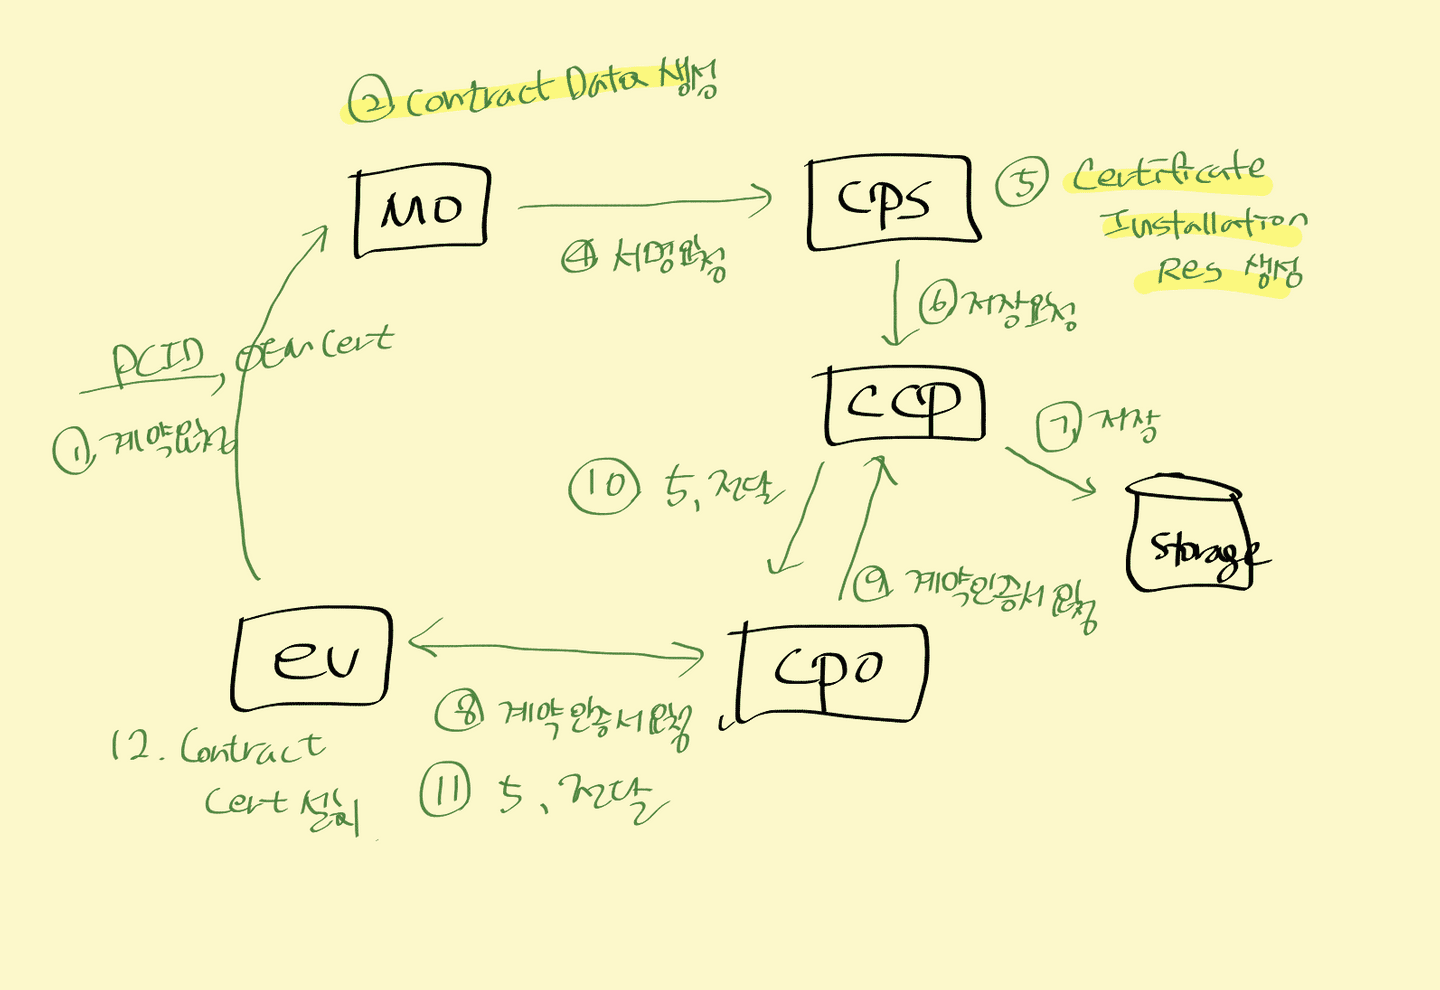 ② Contract Data 생성
MO
CPS
⑤ Certificate
Installation
Res 생성
④ 서명요청
⑥ 저장요청
PCID, OEM Cert
①, 계약요청
CCP
⑦, 저장
⑩ 5, 전달
Storage
⑨ 계약인증서 요청
EV
CPO
⑧ 계약인증서요청
12. Contract
Cert 설치
⑪ 5, 전달